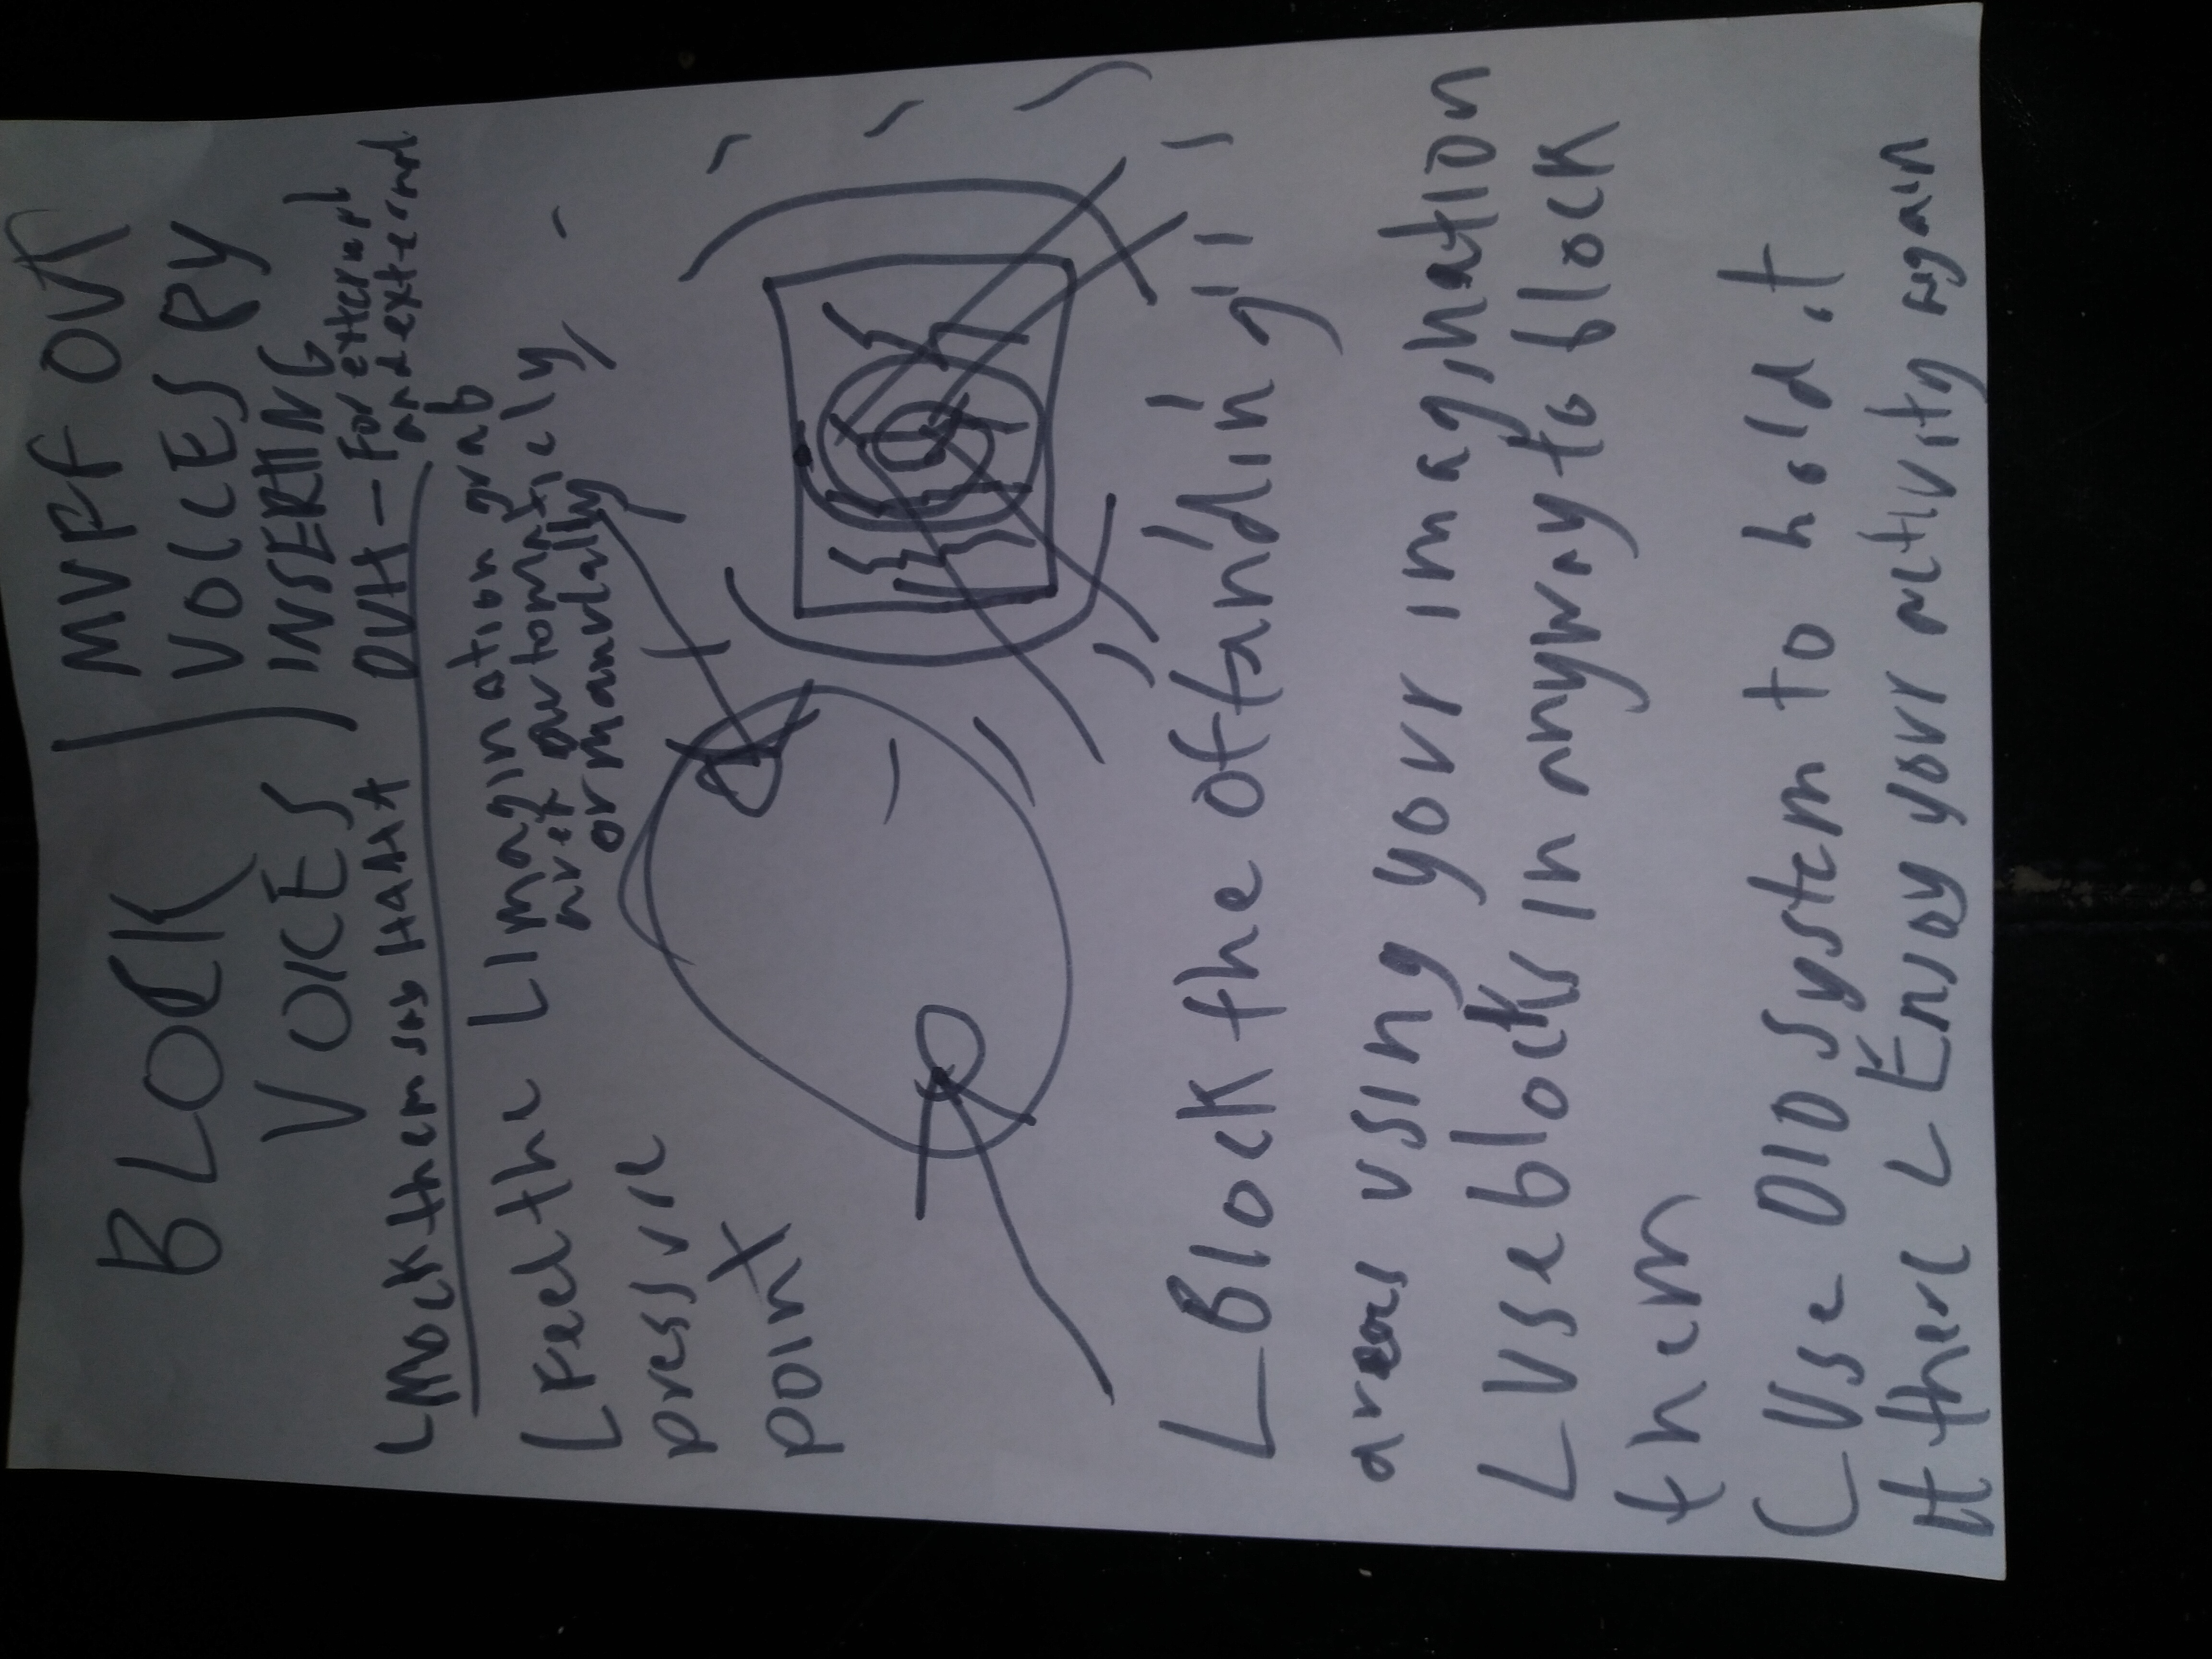 BLOCK
VOICES
MUPF OUR
VOICES BY
INSERTING
DUH - For external
and external
L Mock them say HAHA
L Feel the
pressure
point
L Imagination grab
net automaticly/
or manually
L Block the offanding
areas using your imagination
L Use blocks in anyway to block
them
L Use DID system to hold it
there L Enjoy your activity again